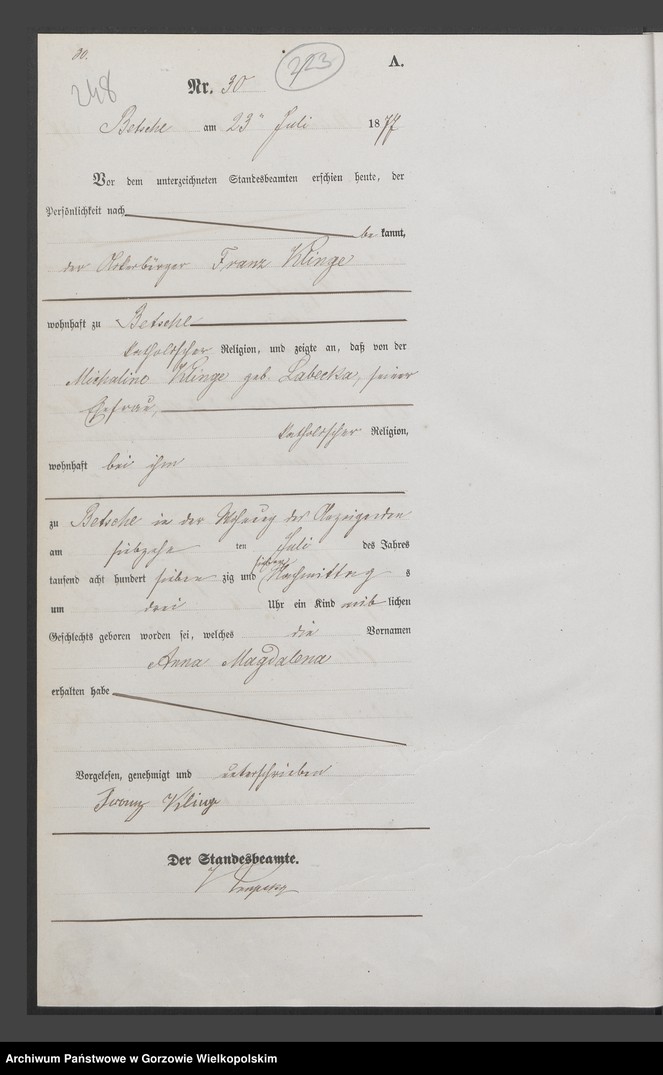 30.
A.
223
248
Nr. 30
Betsche am 23ⁿ Juli 1877
Vor dem unterzeichneten Standesbeamten erschien heute, der
Persönlichkeit nach
be kannt,
der Ackerbürger Franz Klinge
wohnhaft zu Betsche
katholischer Religion, und zeigte an, daß von der
Michaline Klinge geb. Labecka, seiner
Ehefrau,
katholischer Religion,
wohnhaft bei ihm
zu Betsche in der Wohnung des Anzeigenden
am siebzehn ten Juli des Jahres
tausend acht hundert sieben zig und sieben Nachmittag s
um drei Uhr ein Kind weib lichen
Geschlechts geboren worden sei, welches die Vornamen
Anna Magdalena
erhalten habe
Vorgelesen, genehmigt und unterschrieben
Franz Klinge
Der Standesbeamte.
Archiwum Państwowe w Gorzowie Wielkopolskim